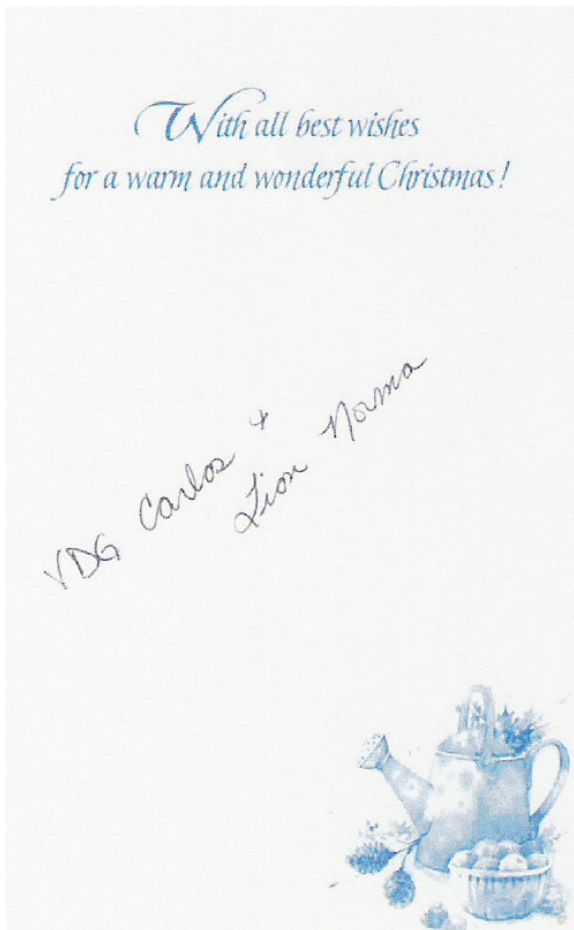 With all best wishes
for a warm and wonderful Christmas!
VDG Carlos +
Lion Norma